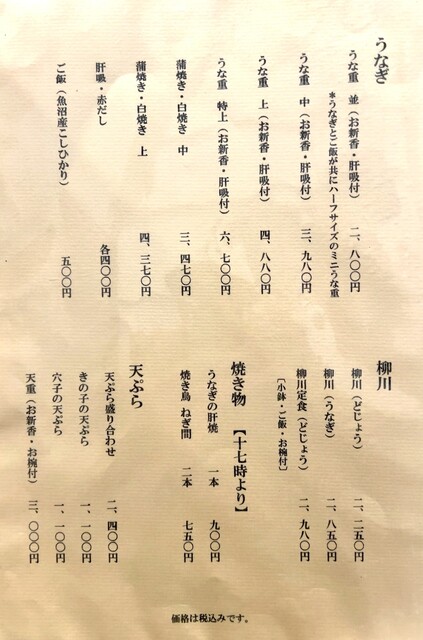 うなぎ
うな重 並（お新香・肝吸付） 二、八〇〇円
＊うなぎとご飯が共にハーフサイズのミニうな重
うな重 中（お新香・肝吸付） 三、九八〇円
うな重 上（お新香・肝吸付） 四、八八〇円
うな重 特上（お新香・肝吸付） 六、七〇〇円
蒲焼き・白焼き 中 三、四七〇円
蒲焼き・白焼き 上 四、三七〇円
肝吸・赤だし 各四〇〇円
ご飯（魚沼産こしひかり） 五〇〇円
柳川
柳川（どじょう） 二、二五〇円
柳川（うなぎ） 二、八五〇円
柳川定食（どじょう） 二、九八〇円
［小鉢・ご飯・お椀付］
焼き物 【十七時より】
うなぎの肝焼 一本 九〇〇円
焼き鳥 ねぎ間 二本 七五〇円
天ぷら
天ぷら盛り合わせ 二、四〇〇円
きの子の天ぷら 一、一〇〇円
穴子の天ぷら 一、一〇〇円
天重（お新香・お椀付） 三、〇〇〇円
価格は税込みです。